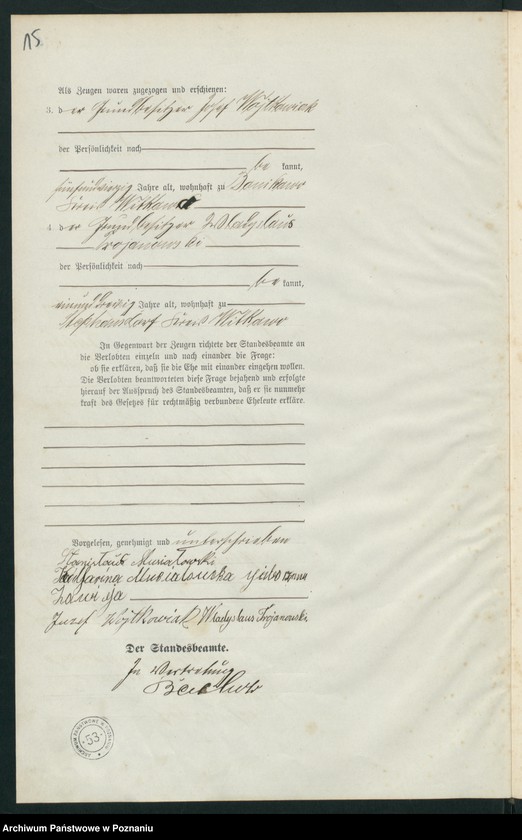 15
Als Zeugen waren zugezogen und erschienen:
3. der Grundbesitzer Josef Wojtkowiak
der Persönlichkeit nach
be kannt,
fünfundvierzig Jahre alt, wohnhaft zu
Kreis Witkowo
4. der Grundbesitzer Wladyslaus
Trojanowski
der Persönlichkeit nach
be kannt,
einunddreißig Jahre alt, wohnhaft zu
Stephansdorf Kreis Witkowo
In Gegenwart der Zeugen richtete der Standesbeamte an
die Verlobten einzeln und nach einander die Frage:
ob sie erklären, daß sie die Ehe mit einander eingehen wollen.
Die Verlobten beantworteten diese Frage bejahend und erfolgte
hierauf der Ausspruch des Standesbeamten, daß er sie nunmehr
kraft des Gesetzes für rechtmäßig verbundene Eheleute erkläre.
Vorgelesen, genehmigt und unterschrieben
Stanislaus Musiatowski
Katharina Musiatowska
Jozef Wojtkowiak Wladyslaus Trojanowski.
Der Standesbeamte.
In Vertretung
53
Archiwum Państwowe w Poznaniu